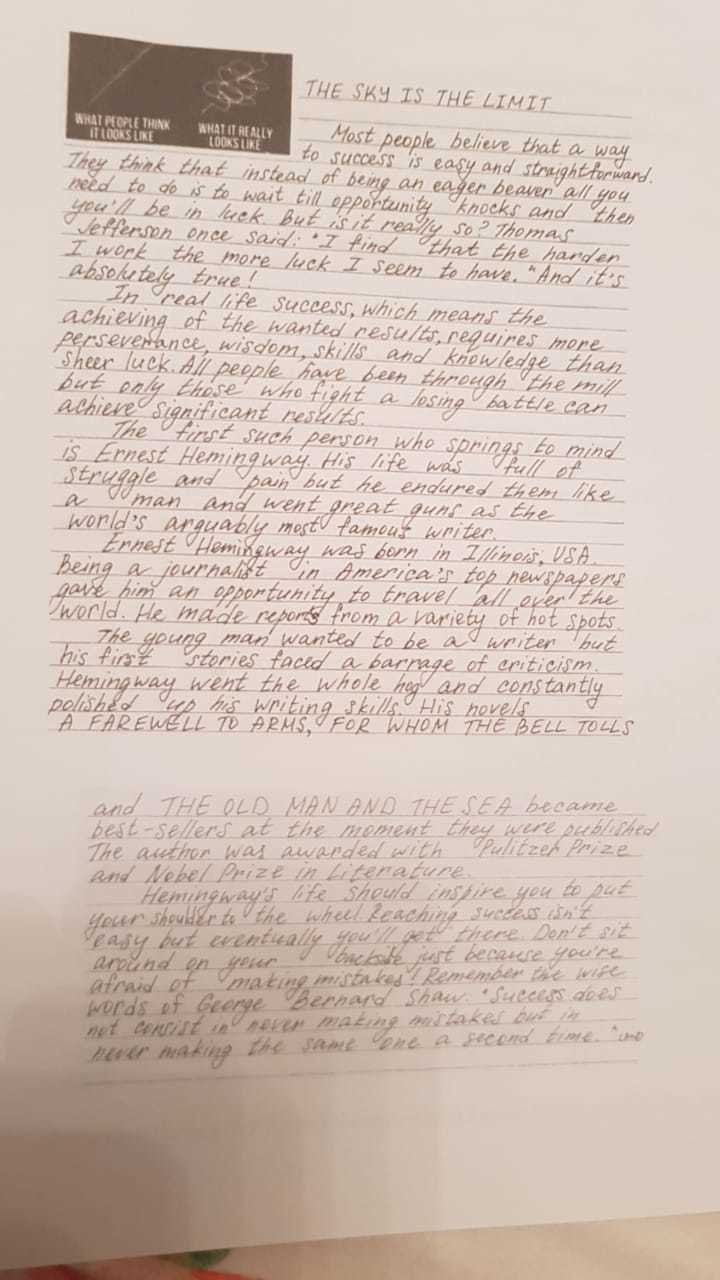 WHAT PEOPLE THINK
IT LOOKS LIKE
WHAT IT REALLY
LOOKS LIKE
THE SKY IS THE LIMIT
Most people believe that a way
to success is easy and straightforward.
They think that instead of being an eager beaver all you
need to do is to wait till opportunity knocks and then
you'll be in luck. But is it really so? Thomas
Jefferson once said: "I find that the harder
I work the more luck I seem to have." And it's
absolutely true!
In real life success, which means the
achieving of the wanted results, requires more
perseverance, wisdom, skills and knowledge than
sheer luck. All people have been through the mill
but only those who fight a losing battle can
achieve significant results.
The first such person who springs to mind
is Ernest Hemingway. His life was full of
struggle and pain but he endured them like
a man and went great guns as the
world's arguably most famous writer.
Ernest Hemingway was born in Illinois, USA.
Being a journalist in America's top newspapers
gave him an opportunity to travel all over the
world. He made reports from a variety of hot spots.
The young man wanted to be a writer but
his first stories faced a barrage of criticism.
Hemingway went the whole hog and constantly
polished up his writing skills. His novels
A FAREWELL TO ARMS, FOR WHOM THE BELL TOLLS
and THE OLD MAN AND THE SEA became
best-sellers at the moment they were published
The author was awarded with Pulitzer Prize
and Nobel Prize in Literature.
Hemingway's life should inspire you to put
your shoulder to the wheel. Reaching success isn't
easy but eventually you'll get there. Don't sit
around on your backside just because you're
afraid of making mistakes! Remember the wise
words of George Bernard Shaw: "Success does
not consist in never making mistakes but in
never making the same one a second time."